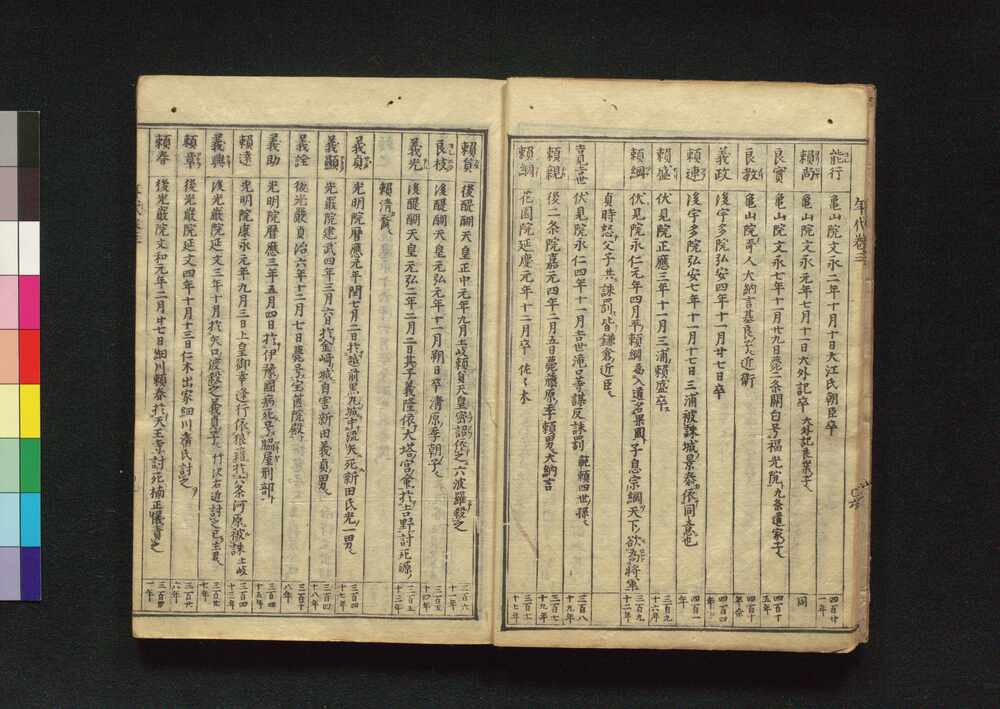 年代巻三
能行 亀山院文永二年十月十日大江氏朝臣卒 四百廿一年
頼尚 亀山院文永元年七月十一日大外記卒 大外記良業子 同
良實 亀山院文永七年十一月廿九日薨二条関白号福光院九条道家子 四百十五年
良教 亀山院 人大納言基良 近衛
義政 後宇多院弘安四年十一月廿七日卒 四百四年
頼連 後宇多院弘安七年十一月十七日三浦被誅城景泰依同意也 四百一年
頼盛 伏見院正應三年十一月三浦頼盛卒 三百九十六年
頼綱 伏見院永仁元年四月平頼綱入道名果圓子息宗綱天下欲為将軍 三百九十二年
貞時怒父子共誅罰皆鎌倉近臣
吉世 伏見院永仁四年十一月吉世滝口等謀反誅罰 範頼四世孫 三百八十九年
頼親 後二条院嘉元四年二月五日薨藤原季頼男大納言 三百七十九年
頼綱 花園院延慶元年十二月卒 佐々木 三百七十七年
頼貞 後醍醐天皇正中元年九月土岐頼貞天皇密詔依之六波羅殺之 三百六十一年
良枝 後醍醐天皇元弘元年十一月朔日卒清原季朝子 三百五十四年
義光 後醍醐天皇元弘二年二月二日其子義隆依大塔宮命於吉野討死源 三百五十三年
頼清裔
義貞 光明院暦應元年閏七月二日於越前黒丸城中流矢死新田氏光一男 三百四十七年
義顕 光厳院建武四年三月六日於金崎城自害新田義貞男 三百四十八年
義詮 後光厳貞治六年十二月七日薨号宝篋院殿 三百十八年
義助 光明院暦應三年五月四日於伊豫國病死号脇屋刑部 三百四十五年
頼遠 光明院康永元年九月三日上皇御幸逢行依狼藉於六条河原被誅土岐 三百四十三年
義興 後光厳院延文三年十月於矢口渡殺之義貞子竹沢右近討之 三百廿七年
頼章 後光厳院延文四年十月十三日仁木出家細川清氏討之 三百廿六年
頼春 後光厳院文和元年二月廿七日細川頼春於天王寺討死楠正儀責之